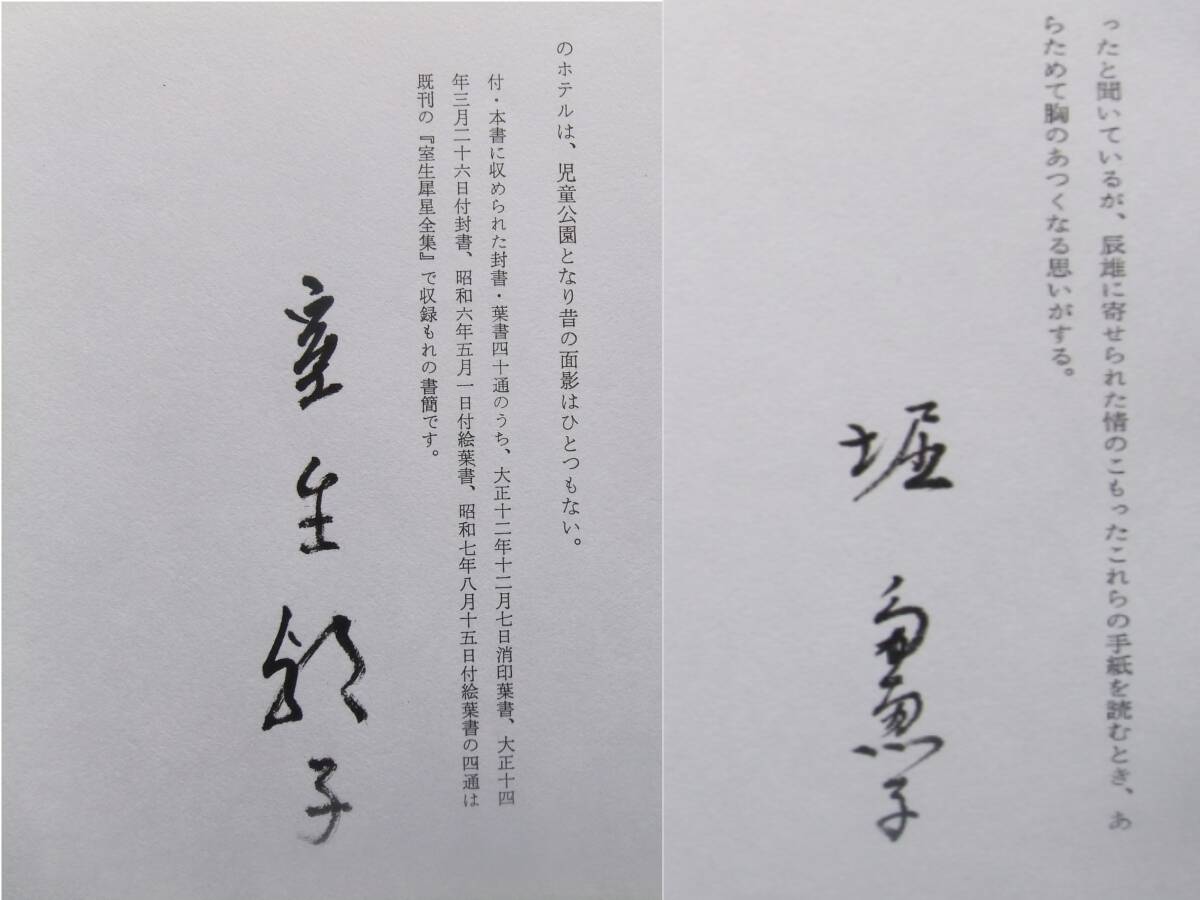 のホテルは、児童公園となり昔の面影はひとつもない。
付・本書に収められた封書・葉書四十通のうち、大正十二年十二月七日消印葉書、大正十四
年三月二十六日付封書、昭和六年五月一日付絵葉書、昭和七年八月十五日付絵葉書の四通は
既刊の『室生犀星全集』で収録もれの書簡です。
室生朝子
ったと聞いているが、辰雄に寄せられた情のこもったこれらの手紙を読むとき、あ
らためて胸のあつくなる思いがする。
堀多恵子